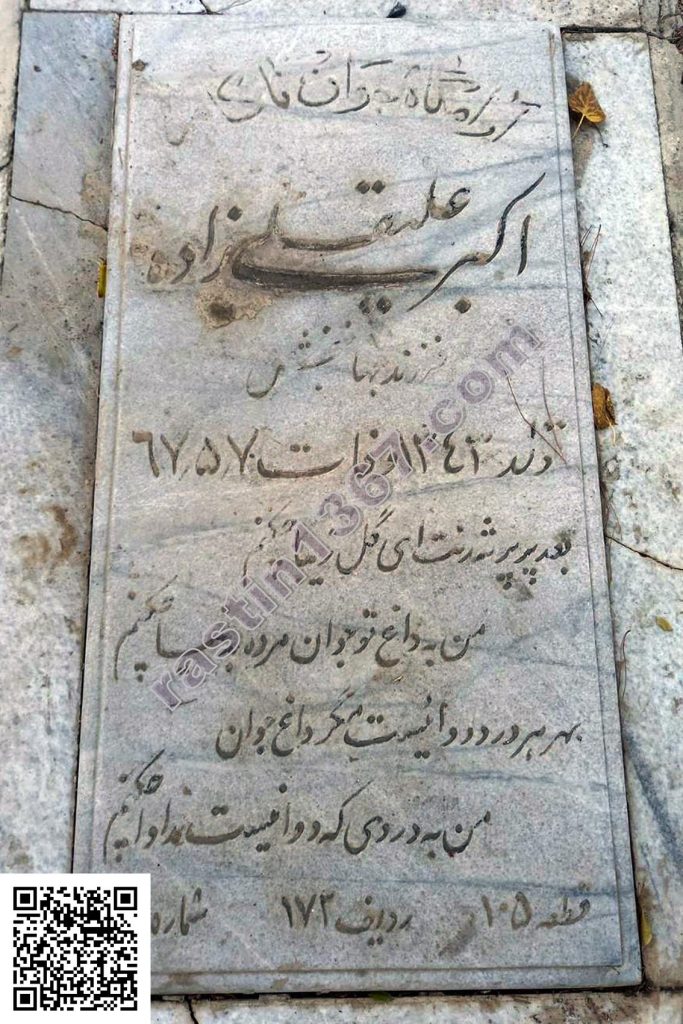 آرامگاه جوان ناکام
اکبر علیقلی زاده
فرزند جهانبخش
تولد ۱۳۴۳ وفات ۶۷٫۵٫۷
بعد پرپر شدنت ای گل زیبا چکنم
من به داغ تو جوان مرده بجا چکنم
بهر هر درد دوائیست مگر داغ جوان
من به دردی که دوا نیست مداوا چکنم
قطعه ۱۰۵ ردیف ۱۷۲ شماره
rastin1367.com